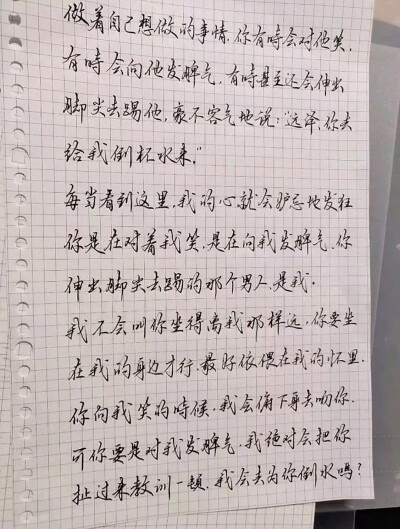 做着自己想做的事情,你有時会对他笑,
有時会向他发脾气,有時甚至还会伸出
脚尖去踢他,豪不客气地说:“远泽,你去
给我倒杯水来。”
每当看到这里,我的心就会妒忌地发狂
你是在对着我笑,是在向我发脾气,你
伸出脚尖去踢的那个男人,是我.
我不会叫你坐得离我那样远,你要坐
在我的身边才行,最好依偎在我的怀里.
你向我笑的時候,我会俯下身去吻你.
可你要是对我发脾气,我绝对会把你
扯过来教训一顿,我会去为你倒水吗?